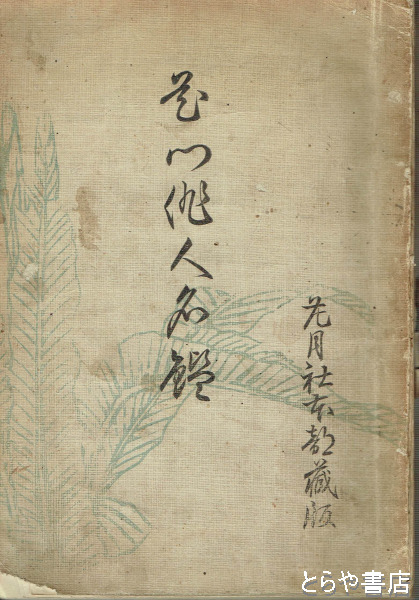 門俳人名鑑
花月社本部藏版
とらや書店